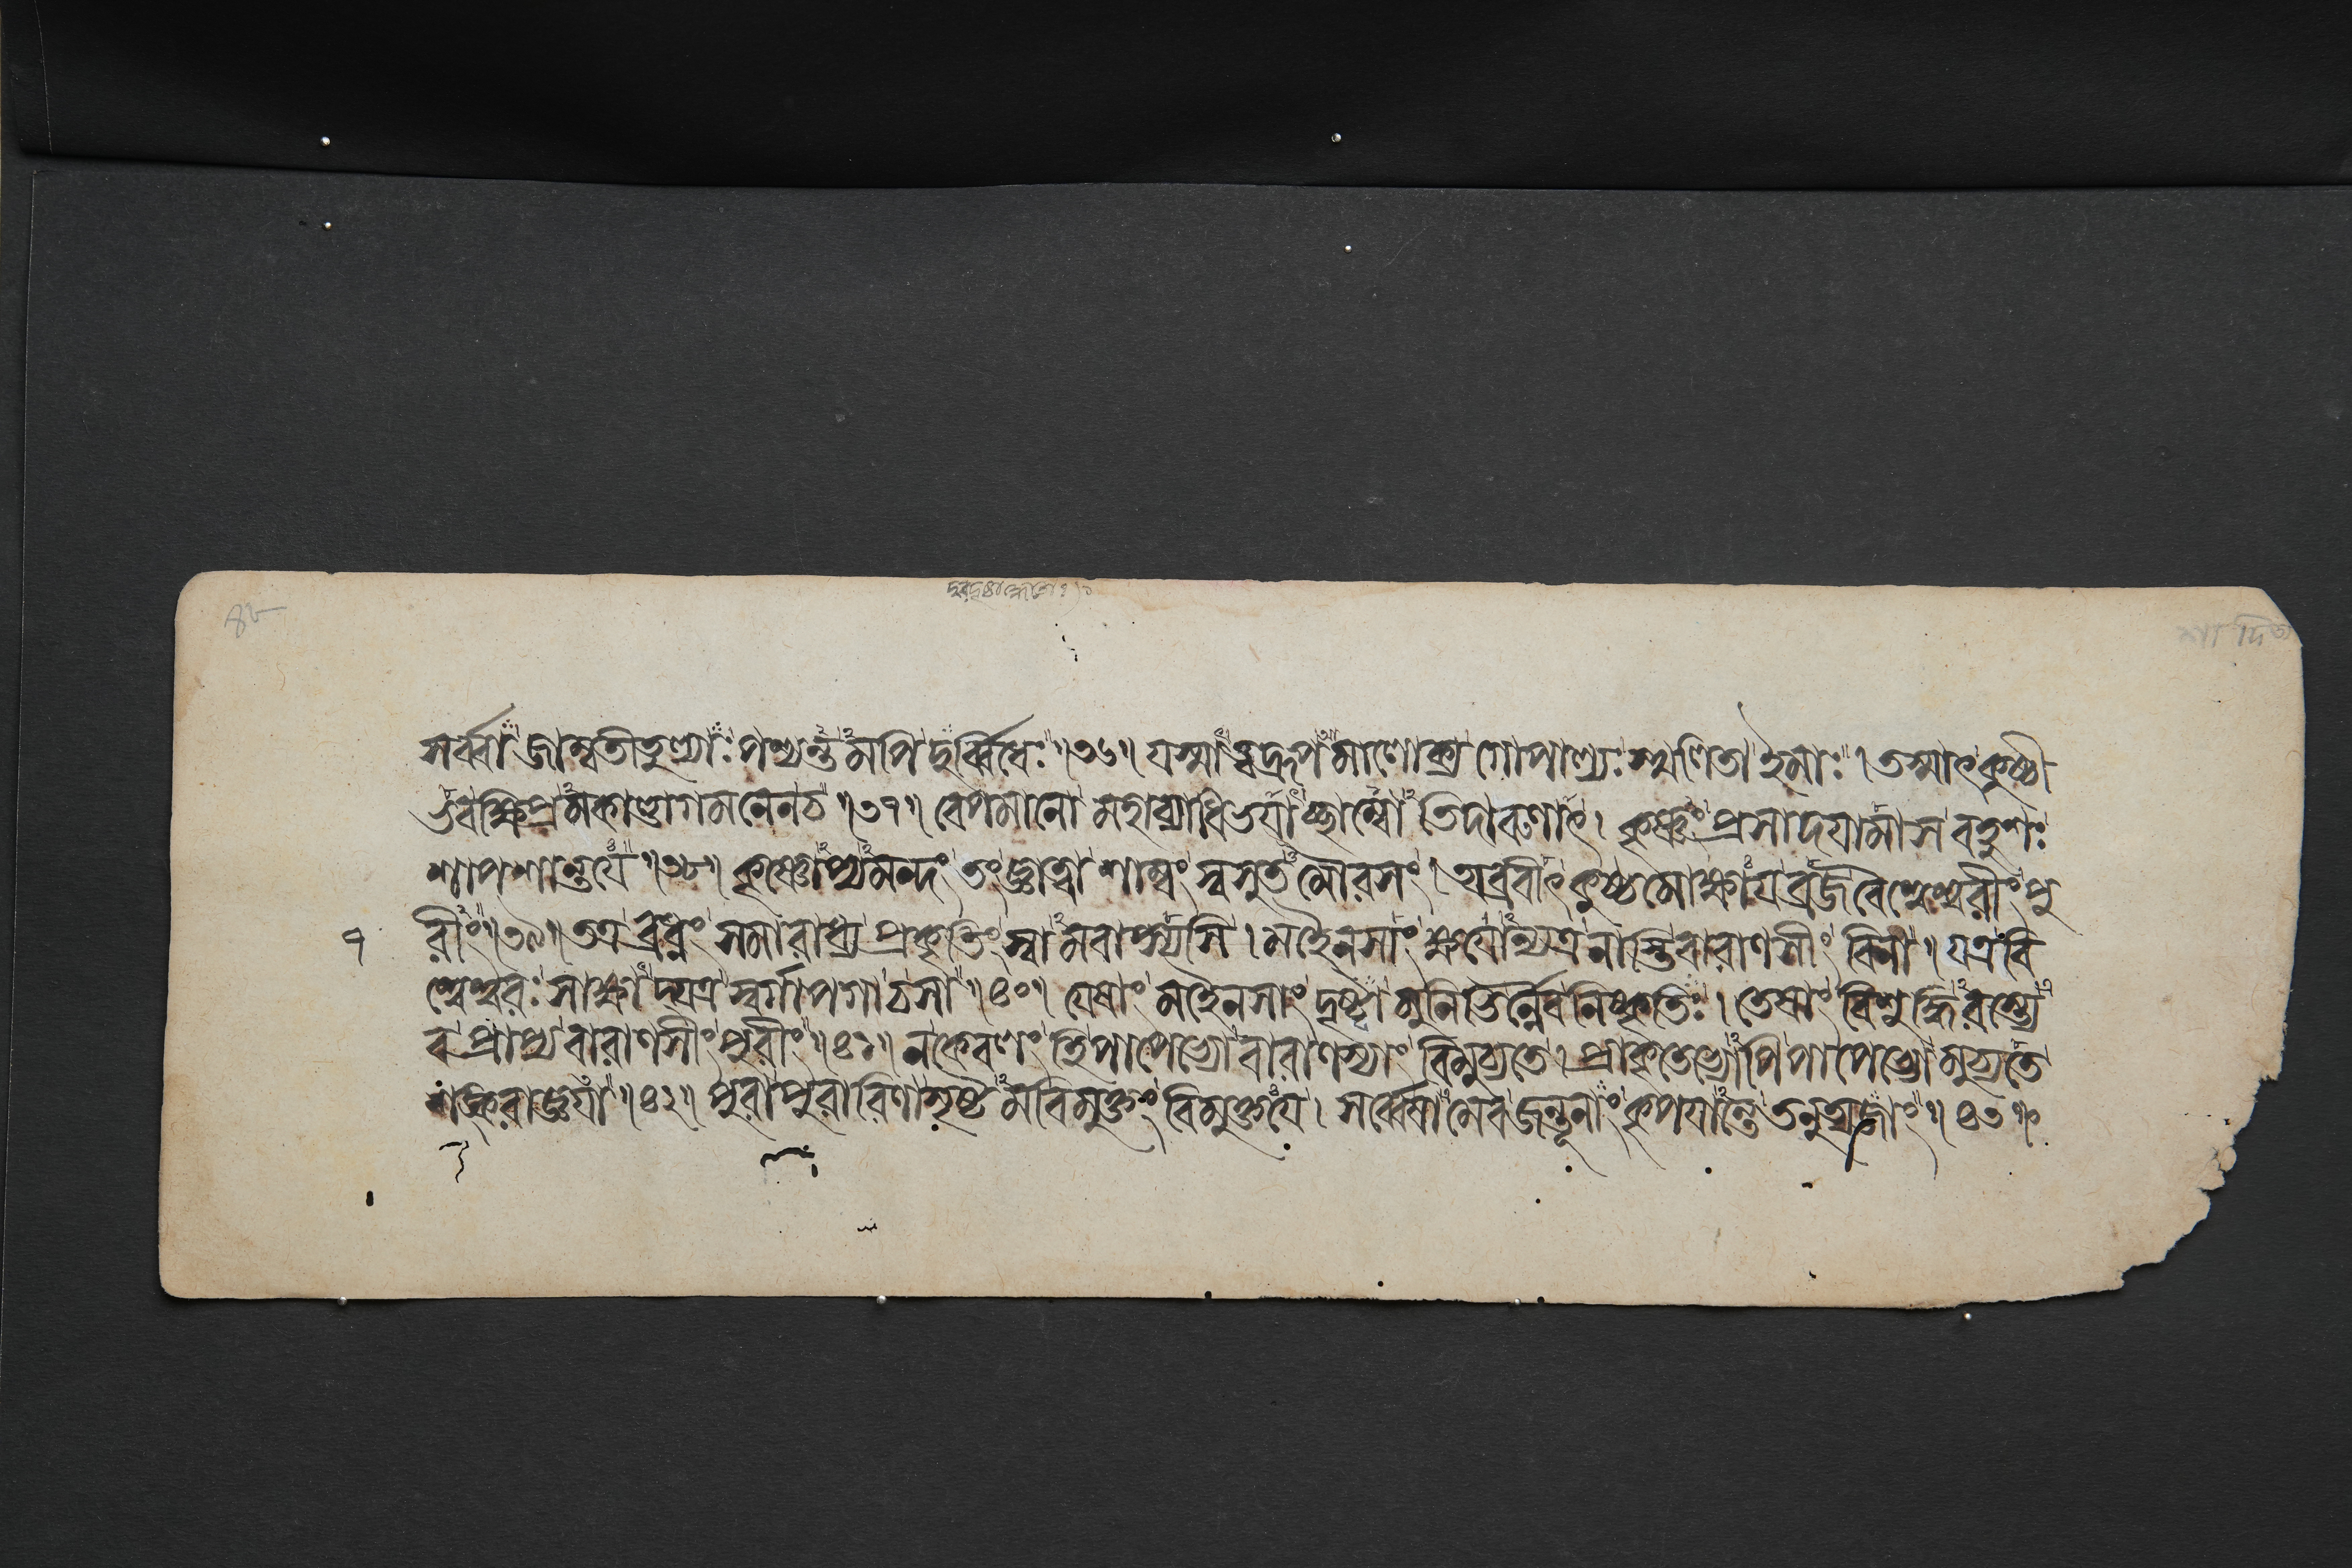 সর্ব্বা জাম্ববতীতুল্যাঃ পশ্যন্তমপি দুর্ব্বিধেঃ ॥ ৩৬ ॥ যস্মাত্ত্বদ্রূপমালোক্য গোপাল্যঃ স্খলিতা ইমাঃ । তস্মাৎ কুষ্ঠী
ভব ক্ষিপ্রমকাণ্ডাগমনেন চ ॥ ৩৭ ॥ বেপমানো মহাব্যাধিভয়াচ্ছাম্বোতিদারুণাৎ । কৃষ্ণং প্রসাদয়ামাস বহুশঃ
শাপশান্তয়ে ॥ ৩৮ ॥ কৃষ্ণোপ্যমন্দং তং জ্ঞাত্বা শাম্বং স্বসুতমৌরসং । অব্রবীৎ কুষ্ঠমোক্ষায় ব্রজ বৈশ্বেশ্বরীং পু
৭ রীং ॥ ৩৯ ॥ তত্র ব্রধ্নং সমারাধ্য প্রকৃতিং স্বামবাপ্স্যসি । মহৈনসাং ক্ষয়োন্যত্র নাস্তি বারাণসীং বিনা ॥ যত্র বি
শ্বেশ্বরঃ সাক্ষাদ্যত্র স্বর্গাপগা চ সা ॥ ৪০ ॥ যেষাং মহৈনসাং দৃষ্টা মুনিভির্ন্নৈব নিষ্কৃতিঃ । তেষাং বিশুদ্ধিরস্ত্যে
ব প্রাপ্য বারাণসীং পুরীং ॥ ৪১ ॥ ন কেবলং হি পাপেভ্যো বারাণস্যাং বিমুচ্যতে । প্রাকৃতেভ্যোপি পাপেভ্যো মুচ্যতে
শঙ্করাজ্ঞয়া ॥ ৪২ ॥ পুরা পুরারিণা সৃষ্টমবিমুক্তং বিমুক্তয়ে । সর্ব্বেষামেব জন্তূনাং কৃপয়ান্তে তনুত্যজাং ॥ ৪৩ ॥